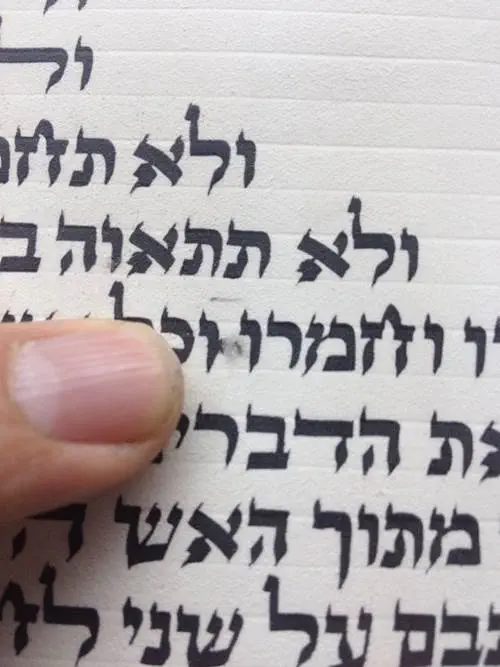 ול
ולא תחמ
ולא תתאוה ב
ו וחמרו וכל
את הדברי
מתוך האש ה
תבם על שני לח